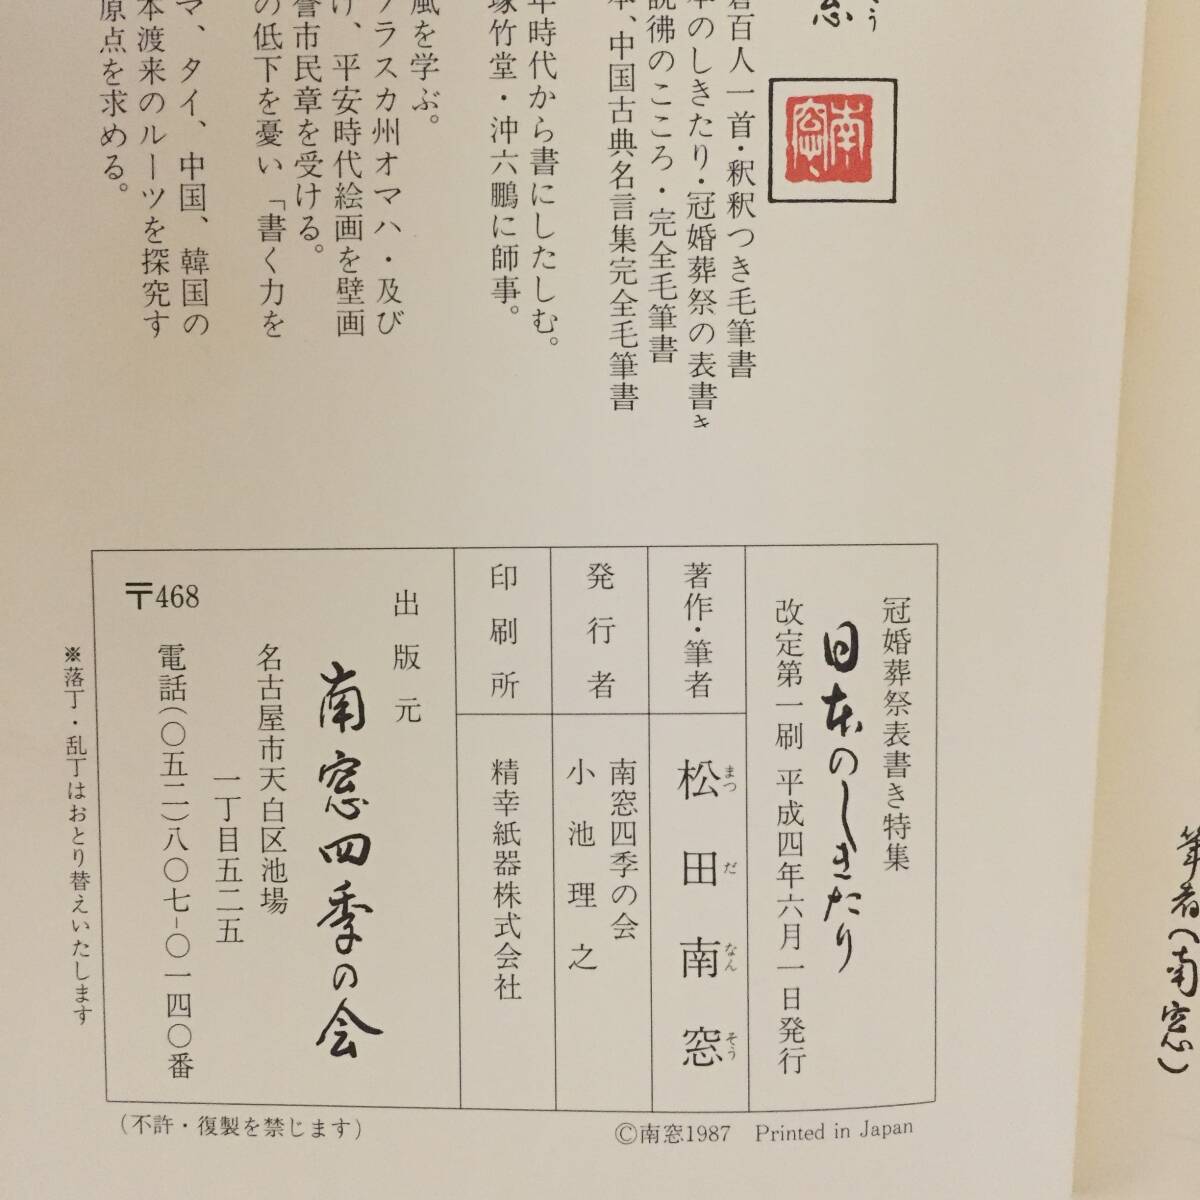 窓
そう
南窓
倉百人一首・釈釈つき毛筆書
本のしきたり・冠婚葬祭の表書き
説彿のこころ・完全毛筆書
本、中国古典名言集完全毛筆書
年時代から書にしたしむ。
塚竹堂・沖六鵬に師事。
風を学ぶ。
ブラスカ州オマハ・及び
け、平安時代絵画を壁画
誉市民章を受ける。
の低下を憂い「書く力を
マ、タイ、中国、韓国の
本渡来のルーツを探究す
原点を求める。
冠婚葬祭表書き特集
日本のしきたり
改定第一刷 平成四年六月一日発行
著作・筆者
松田南窓
まつ だ なん そう
発行者
南窓四季の会
小池理之
印刷所
精幸紙器株式会社
出版元
南窓四季の会
名古屋市天白区池場
一丁目五二五
〒468
電話(〇五二)八〇七-〇一四〇番
※落丁・乱丁はおとり替えいたします
(不許・復製を禁じます)
©南窓1987 Printed in Japan
筆者(南窓)